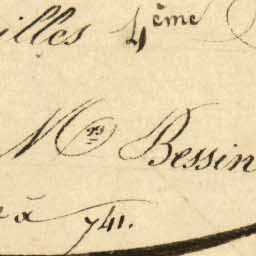 illes 4ème
Mrs Bessin
à 741.